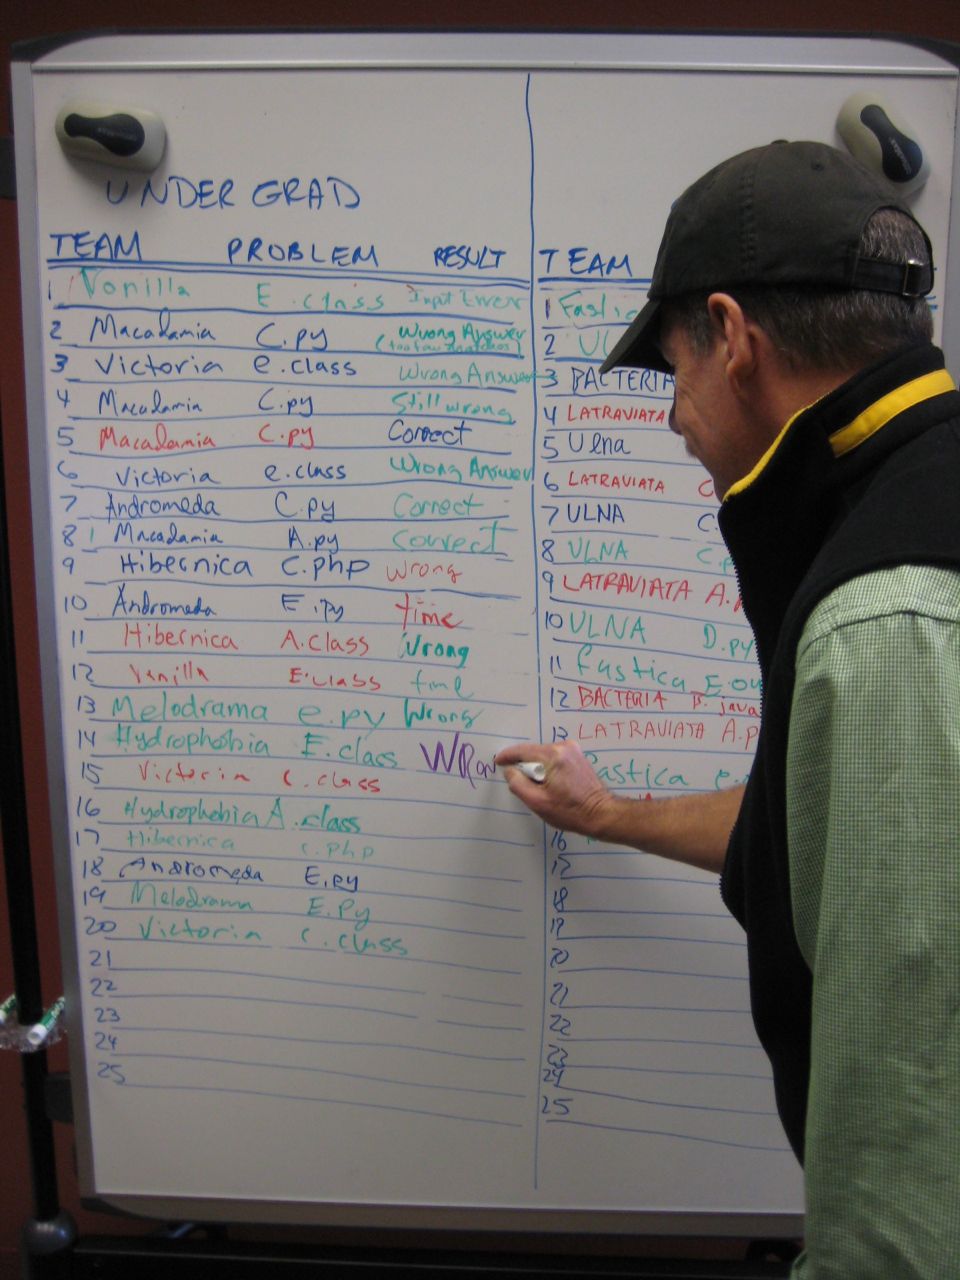 UNDER GRAD
TEAM PROBLEM RESULT
1 Vanilla E.class Input Error
2 Macadamia C.py Wrong Answer
(too few matches)
3 Victoria e.class Wrong Answer
4 Macadamia C.py Still wrong
5 Macadamia C.py Correct
6 Victoria e.class Wrong Answer
7 Andromeda C.py Correct
8 Macadamia A.py Correct
9 Hibernica C.php wrong
10 Andromeda E.py time
11 Hibernica A.class Wrong
12 Vanilla E.class time
13 Melodrama e.py Wrong
14 Hydrophobia E.class WRON
15 Victoria C.class
16 Hydrophobia A.class
17 Hibernica C.php
18 Andromeda E.py
19 Melodrama E.Py
20 Victoria C.class
21
22
23
24
25
TEAM
1 Fastic
2 UL
3 BACTERIA
4 LATRAVIATA
5 Ulna
6 LATRAVIATA C
7 ULNA C.
8 ULNA C.p
9 LATRAVIATA A.p
10 ULNA D.py
11 Fastica E.ou
12 BACTERIA B.java
13 LATRAVIATA A.p
Fastica e.
16
17
18
19
20
21
22
23
24
25